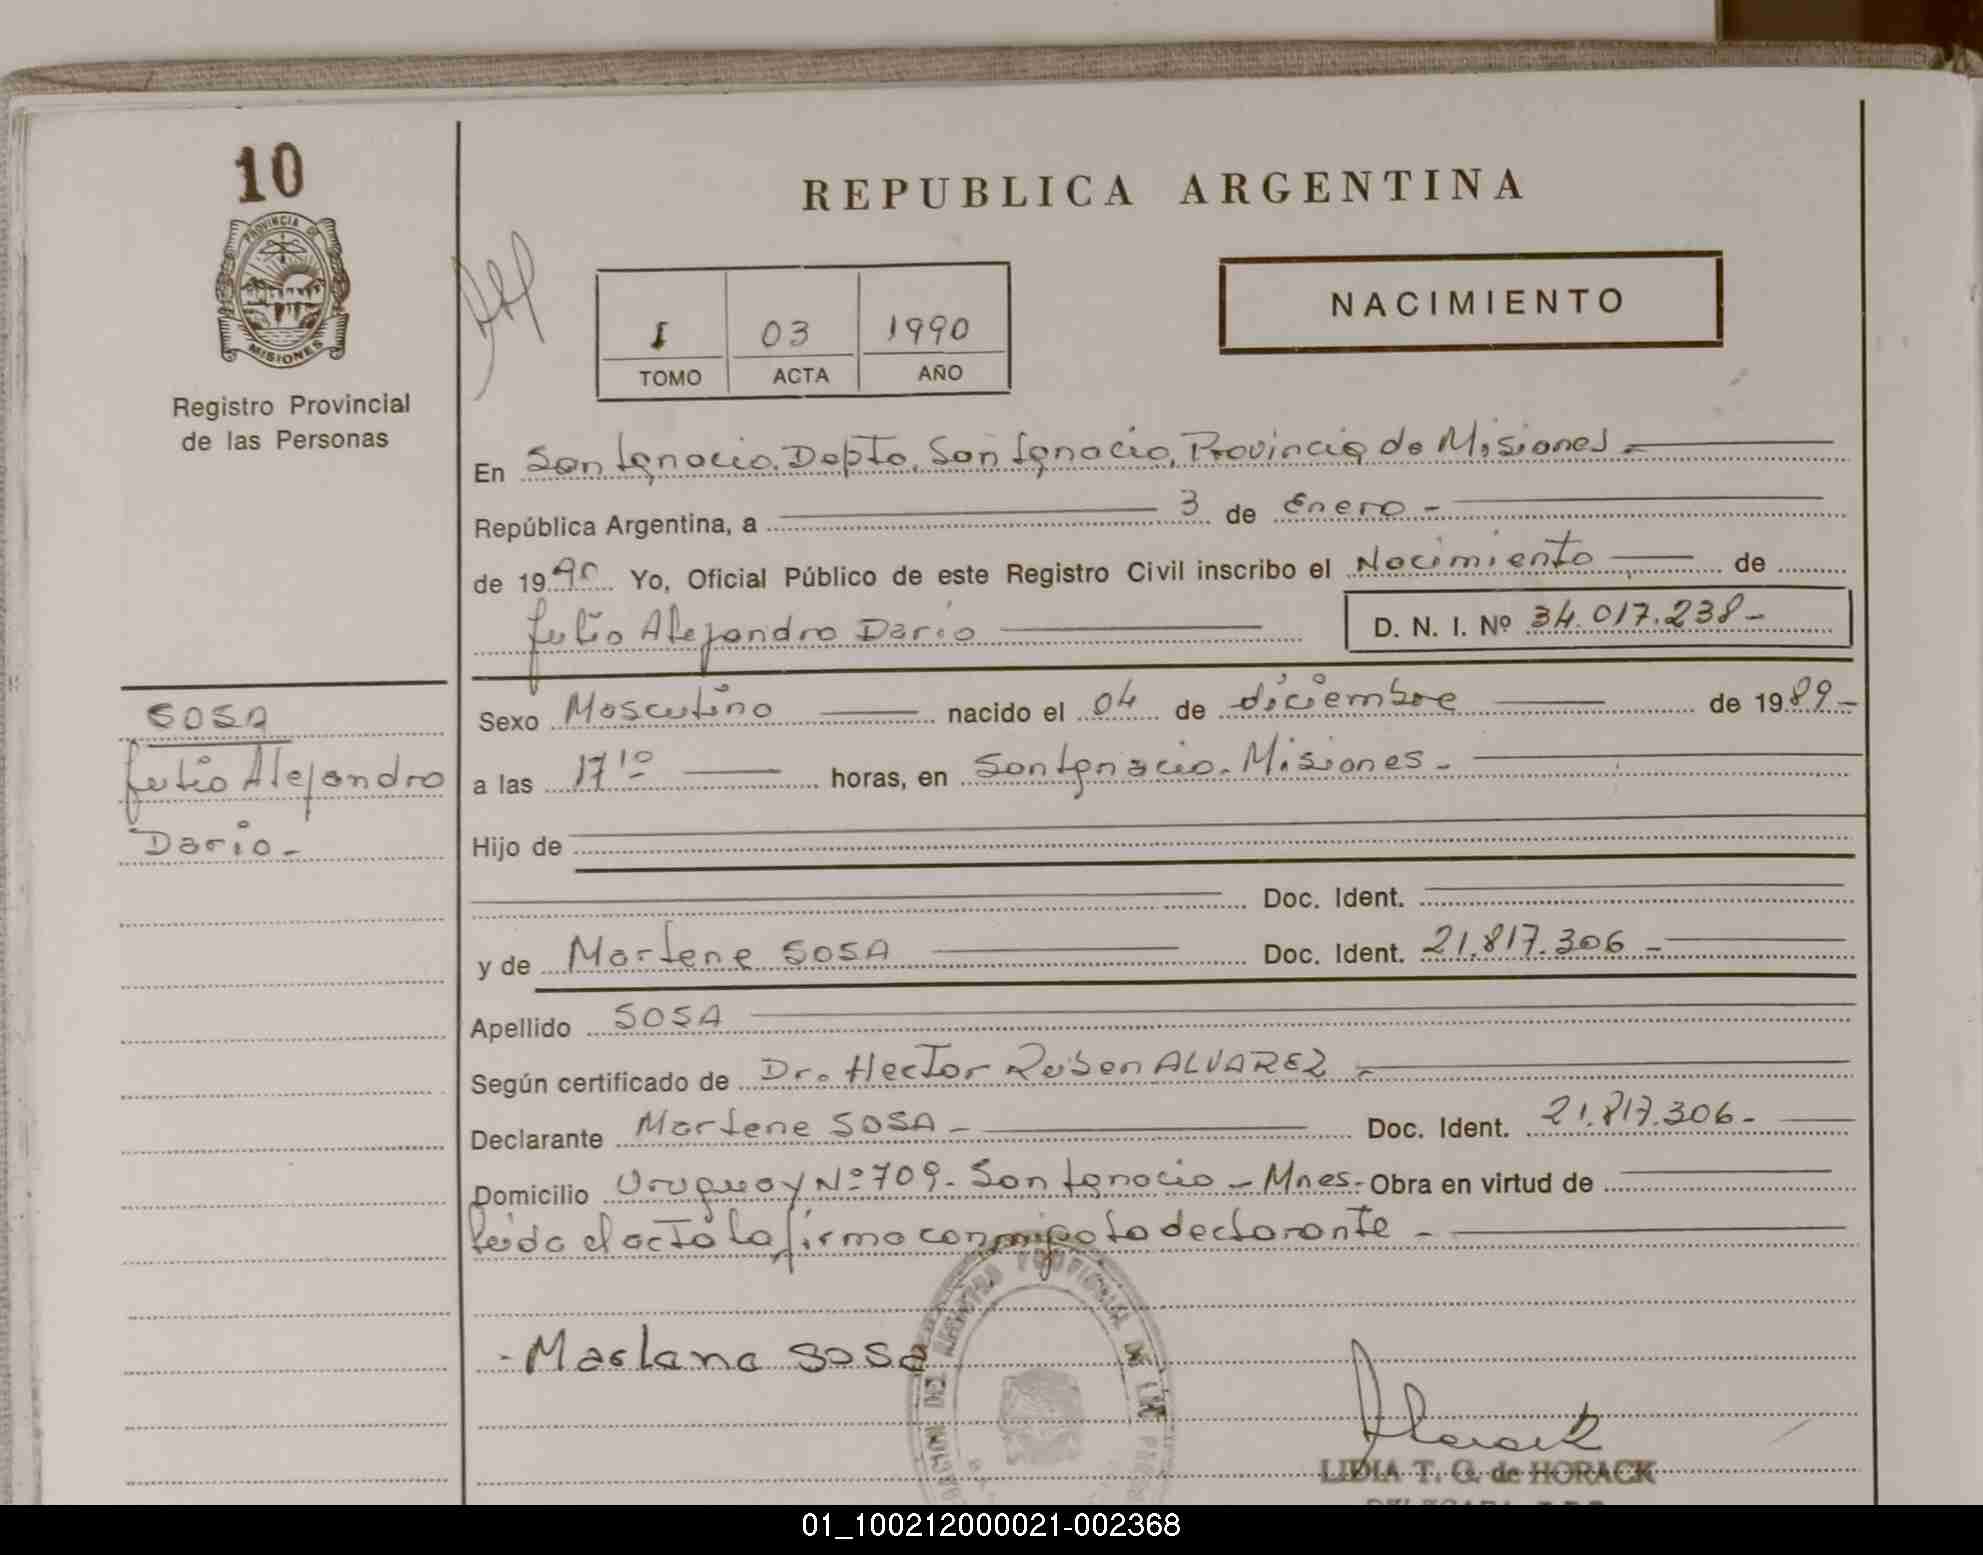 10
PROVINCIA DE
MISIONES
Registro Provincial
de las Personas
REPUBLICA ARGENTINA
I 03 1990
TOMO ACTA AÑO
NACIMIENTO
En San Ignacio, Depto. San Ignacio, Provincia de Misiones -
República Argentina, a 3 de Enero -
de 1990 Yo, Oficial Público de este Registro Civil inscribo el Nacimiento de
Julio Alejandro Dario
D. N. I. Nº 34.017.238-
SOSA
Julio Alejandro
Dario -
Sexo Masculino nacido el 04 de diciembre de 1989-
a las 17 10 horas, en San Ignacio - Misiones -
Hijo de
Doc. Ident.
y de Marlene SOSA Doc. Ident. 21.817.306 -
Apellido SOSA
Según certificado de Dr. Hector Ruben ALVAREZ -
Declarante Marlene SOSA - Doc. Ident. 21.817.306-
Domicilio Uruguay Nº 709 - San Ignacio - Mnes - Obra en virtud de
leida el acta la firma conmigo la declarante -
- Marlene SOSA
PROVINCIAL DE LAS
Horack
LIDIA T. G. de HORACK
01_100212000021-002368